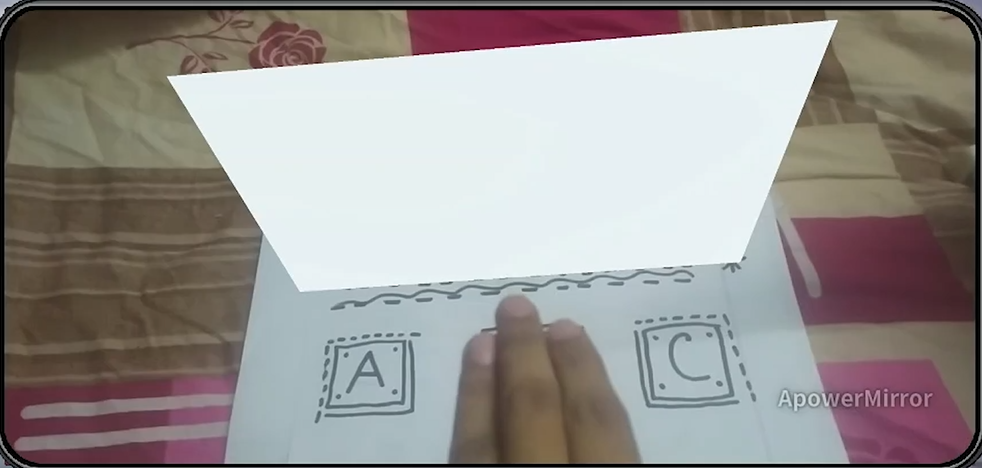 A C
ApowerMirror